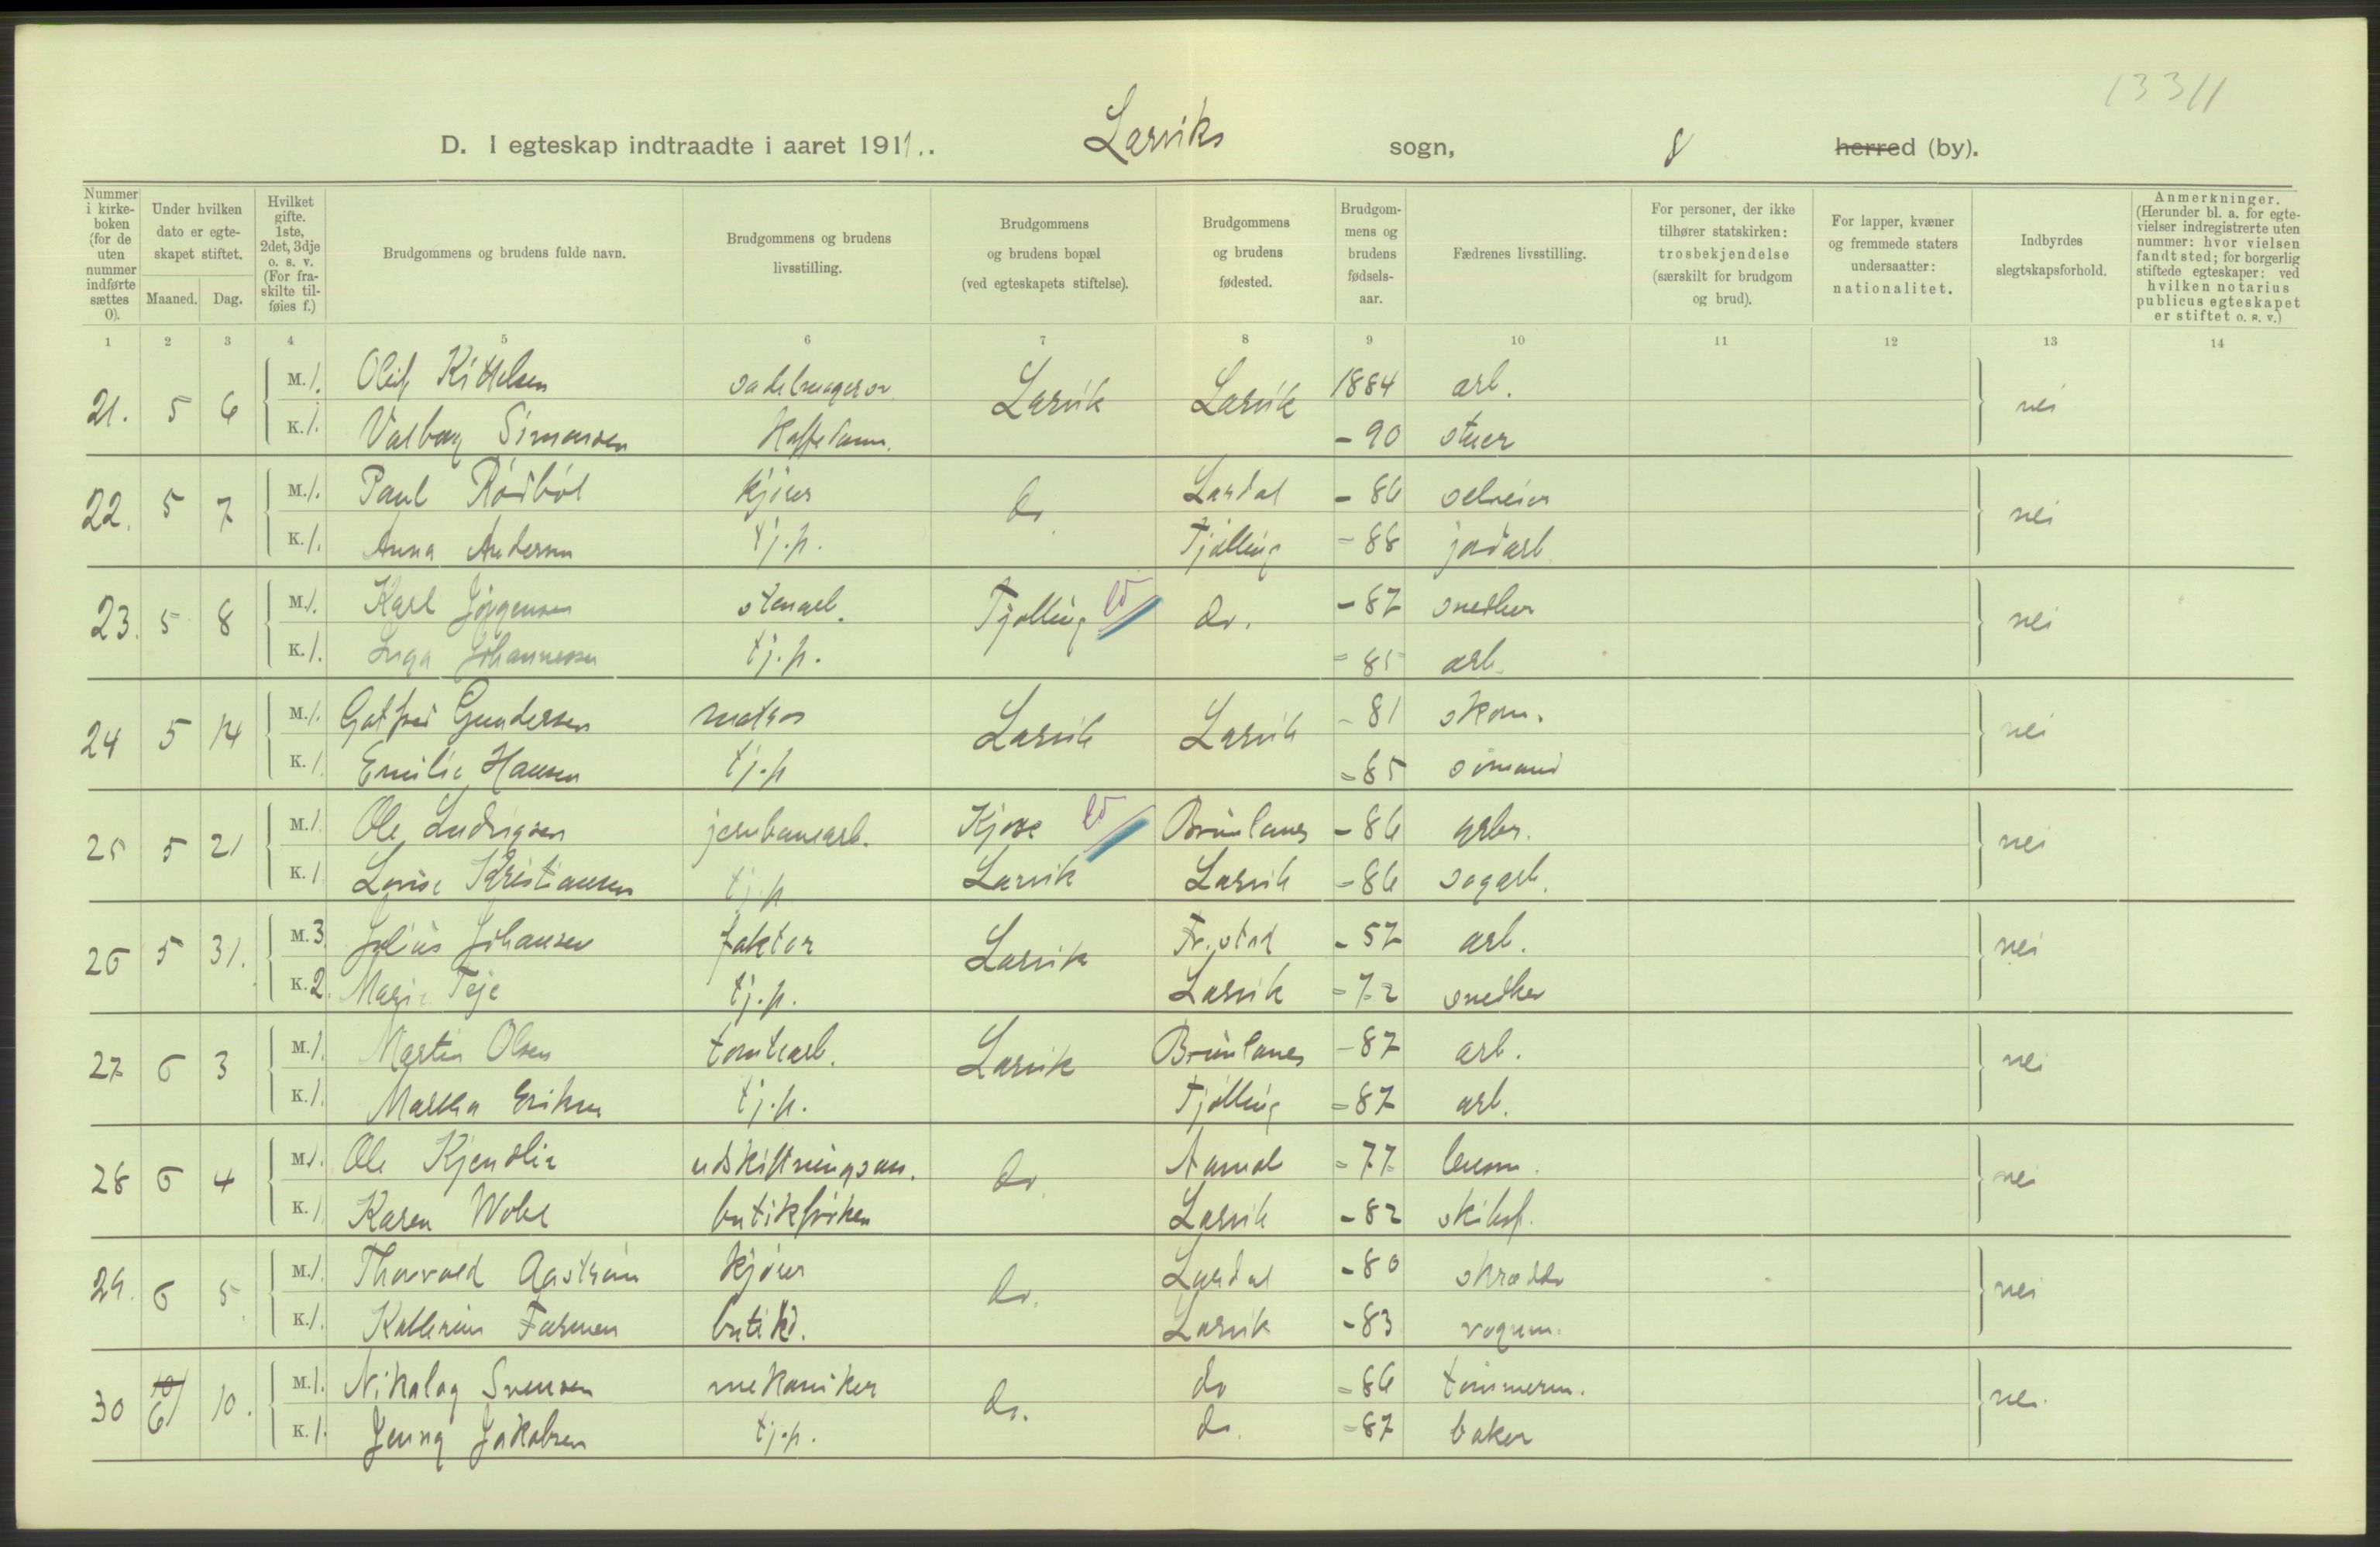 1331/
D. I egteskap indtraadte i aaret 1911.. Larviks sogn, 8 herred (by).
Nummer i kirkeboken (for de uten nummer indførte sættes 0).
Under hvilken dato er egteskapet stiftet.
Maaned. Dag.
Hvilket gifte. 1ste, 2det, 3dje o. s. v. (For fraskilte tilføies f.)
Brudgommens og brudens fulde navn.
Brudgommens og brudens livsstilling.
Brudgommens og brudens bopæl (ved egteskapets stiftelse).
Brudgommens og brudens fødested.
Brudgommens og brudens fødselsaar.
Fædrenes livsstilling.
For personer, der ikke tilhører statskirken: trosbekjendelse (særskilt for brudgom og brud).
For lapper, kvæner og fremmede staters undersaatter: nationalitet.
Indbyrdes slegtskapsforhold.
Anmerkninger. (Herunder bl. a. for egtevielser indregistrerte uten nummer: hvor vielsen fandt sted; for borgerlig stiftede egteskaper: ved hvilken notarius publicus egteskapet er stiftet o. s. v.)
1 2 3 4 5 6 7 8 9 10 11 12 13 14
21. 5 6 M. 1. Olaf Kittelsen Larvik Larvik 1884 arb. nei
K. 1. Valborg Simonsen - 90 stuer
22. 5 7 M. 1. Paul Rødbøl kjører do Lardal - 86 selveier nei
K. 1. Anna Andersen tj.p. Tjølling - 88 jordarb.
23. 5 8 M. 1. Karl Jørgensen stenarb. Tjølling do. - 87 snedker nei
K. 1. Inga Johannessen tj.p. - 85 arb.
24 5 14 M. 1. Gotfred Gundersen matros Larvik Larvik - 81 skom. nei
K. 1. Emilie Hansen tj.p - 85 sømand
25 5 21 M. 1. Ole Ludvigsen jernbanearb. Kjose Brunlanes - 86 nei
K. 1 Lovise Kristiansen tj.p Larvik Larvik - 86 sagarb.
26 5 31. M. 3 Julius Johansen faktor Larvik Fr.stad - 57 arb. nei
K. 2. Marie Teje tj.p. Larvik - 72 snedker
27 6 3 M. 1. Martin Olsen tomtearb. Larvik Brunlanes - 87 arb. nei
K. 1. Martha Eriksen tj.p. Tjølling - 87 arb.
28 6 4 M. 1. Ole Kjendlie do. - 77 lensm. nei
K. 1 Karen Wold butikfrøken Larvik - 82 skibsf.
29. 6 5. M. 1. Thorvald Aastrøm kjører do. Lardal - 80 skrædder nei
K. 1. Kathrine Farmen butikd. Larvik - 83 vognm.
30 10/6 10. M. 1. Nikolay Svensen mekaniker do. do - 86 tømmerm. nei
K. 1. Jenny Jakobsen tj.p. do. - 87 baker